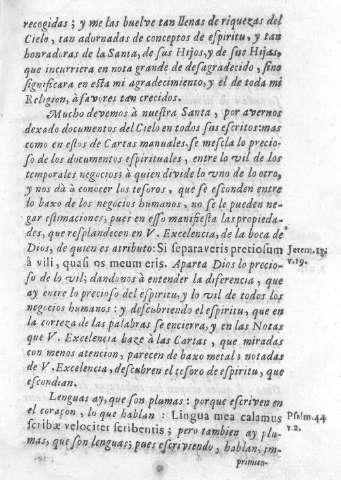 recogidas; y me las buelve tan llenas de riquezas del
Cielo, tan adornadas de conceptos de espiritu, y tan
honradoras de la Santa, de sus Hijos, y de sus Hijas,
que incurriera en nota grande de desagradecido, sino
significara en esta mi agradecimiento, y el de toda mi
Religion, à favores tan crecidos.
Mucho devemos à nuestra Santa, por avernos
dexado documentos del Cielo en todos sus escritos: mas
como en estos de Cartas manuales se mescla lo precio-
so de los documentos espirituales, entre lo vil de los
temporales negocios; à quien divide lo uno de lo otro,
y nos dà à conocer los tesoros, que se esconden entre
lo baxo de los negocios humanos, no se le pueden ne-
gar estimaciones; pues en esso manifiesta las propieda-
des, que resplandecen en V. Excelencia, de la boca de
Dios, de quien es atributo: Si separaveris pretiosum Jerem. 15.
à vili, quasi os meum eris. Aparta Dios lo precio- v.19.
so de lo vil; dandonos à entender la diferencia, que
ay entre lo precioso del espiritu, y lo vil de todos los
negocios humanos: y descubriendo el espiritu, que en
la corteza de las palabras se encierra, y en las Notas
que V. Excelencia haze à las Cartas, que miradas
con menos atencion, parecen de baxo metal; notadas
de V. Excelencia, descubren el tesoro de espiritu, que
escondian.
Lenguas ay, que son plumas: porque escriven en
el coraçon, lo que hablan: Lingua mea calamus Psalm. 44
scribæ velociter scribentis; pero tambien ay plu- v.2.
mas, que son lenguas; pues escriviendo, hablan, im-
primien-